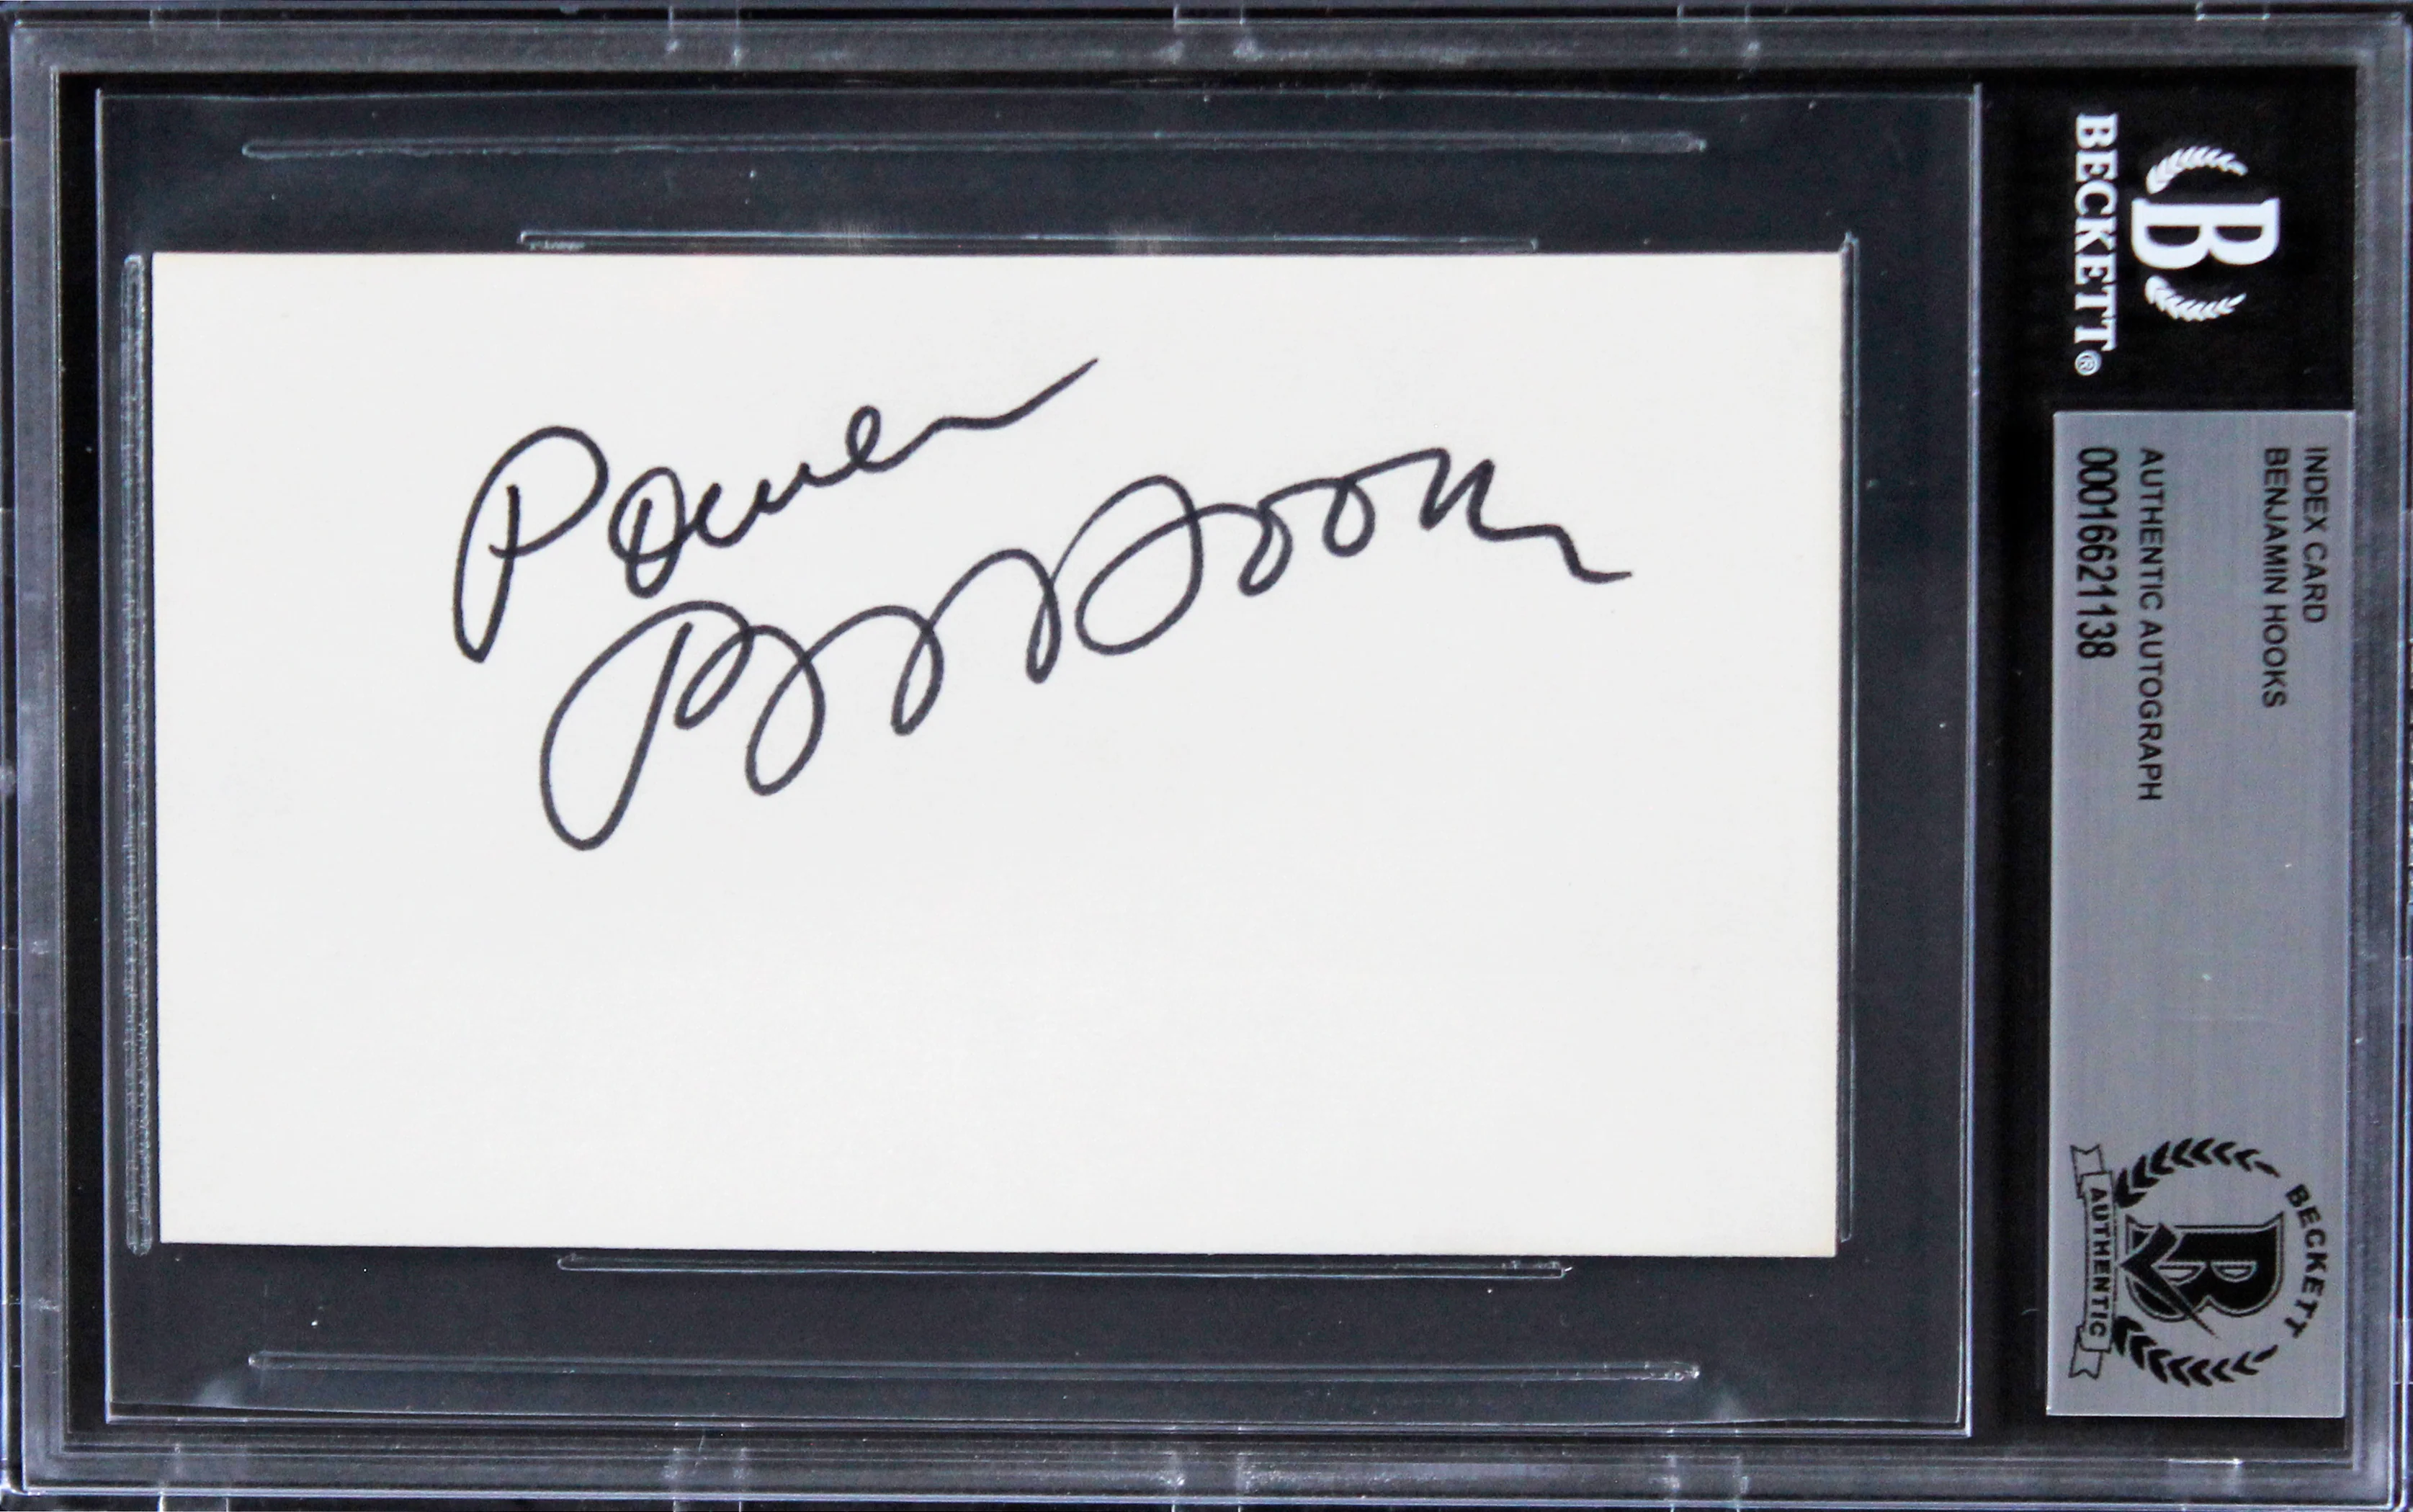 Power
Ben Hooks
BECKETT®
INDEX CARD
BENJAMIN HOOKS
AUTHENTIC AUTOGRAPH
00016621138
BECKETT
AUTHENTIC